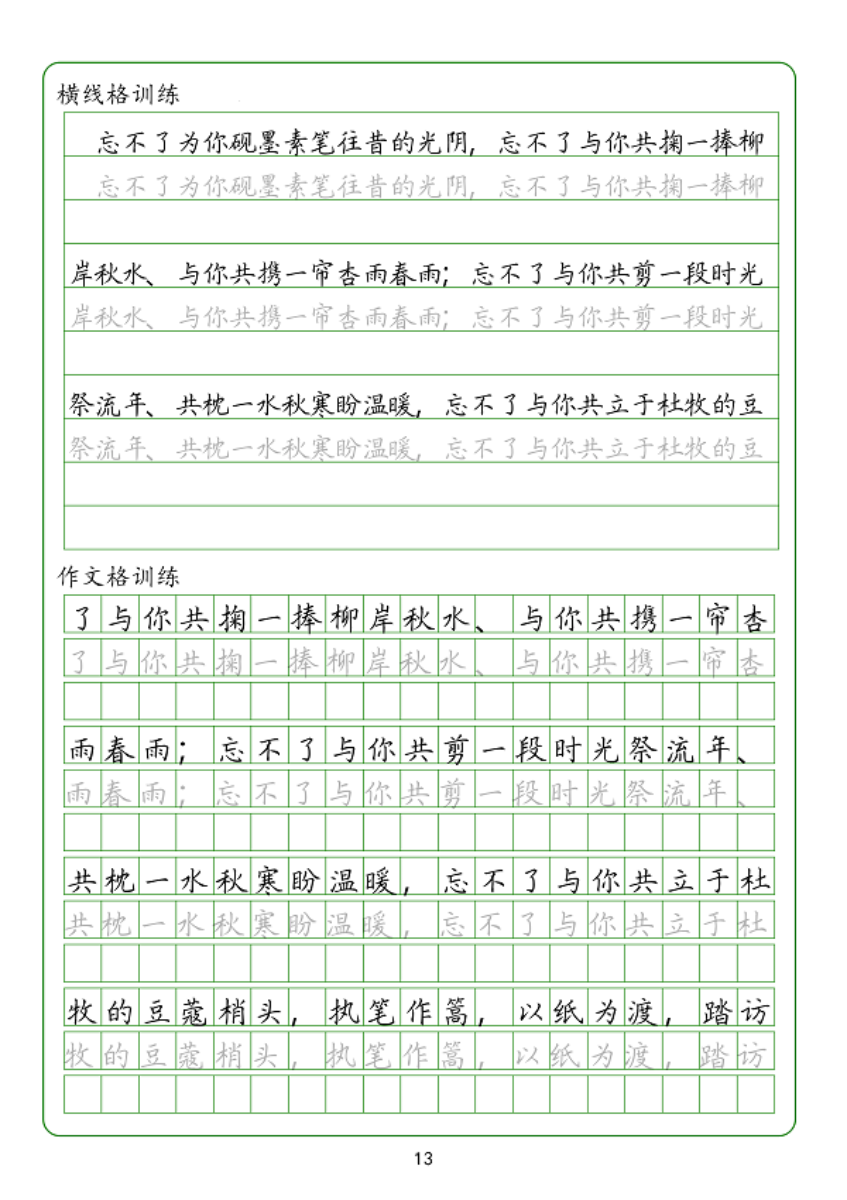 横线格训练
忘不了为你砚墨素笔往昔的光阴，忘不了与你共掬一捧柳
忘不了为你砚墨素笔往昔的光阴，忘不了与你共掬一捧柳
岸秋水、与你共携一帘杏雨春雨；忘不了与你共剪一段时光
岸秋水、与你共携一帘杏雨春雨；忘不了与你共剪一段时光
祭流年、共枕一水秋寒盼温暖，忘不了与你共立于杜牧的豆
祭流年、共枕一水秋寒盼温暖，忘不了与你共立于杜牧的豆
作文格训练
了与你共掬一捧柳岸秋水、与你共携一帘杏
了与你共掬一捧柳岸秋水、与你共携一帘杏
雨春雨；忘不了与你共剪一段时光祭流年、
雨春雨；忘不了与你共剪一段时光祭流年、
共枕一水秋寒盼温暖，忘不了与你共立于杜
共枕一水秋寒盼温暖，忘不了与你共立于杜
牧的豆蔻梢头，执笔作篙，以纸为渡，踏访
牧的豆蔻梢头，执笔作篙，以纸为渡，踏访
13